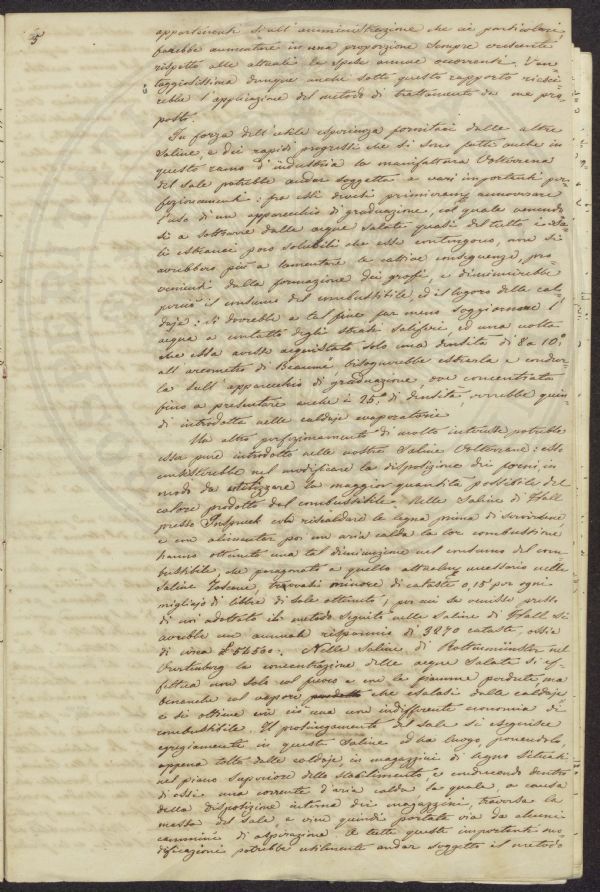 5
appartenenti si all'amministrazione che ai particolari,
farebbe aumentare in una proporzione sempre crescente
rispetto alle attuali le spese annue occorrenti. Van-
taggiosissima dunque anche sotto questo rapporto riesci-
rebbe l'applicazione del metodo di trattamento da me pro-
posto.
In forza dell'utile esperienza fornitaci dalle altre
Saline, e dei rapidi progressi che si sono fatti anche in
questo ramo d'industria la manifattura Volterrana
del sale potrebbe andar soggetta a varj importanti per-
fezionamenti: fra essi devesi primieramente annoverare
l'uso di un apparecchio di graduazione, col quale venendo
si a sottrarre dalle acque salate quasi del tutto i sa-
li estranei poco solubili che esse contengono, non si
avrebbero più a lamentare le cattive conseguenze, pro-
venienti dalla formazione dei groffi, e diminuirebbe
perciò il consumo del combustibile, ed il logoro delle cal-
daje: si dovrebbe a tal fine far meno soggiornare l'
acqua a contatto degli strati saliferi, ed una volta
che essa avesse acquistato solo una densità di 8 a 10°
all'areometro di Beaumé bisognerebbe estrarla e condur-
la sull'apparecchio di graduazione, ove concentrata
fino a presentare anche i 25° di densità verrebbe quin-
di introdotta nelle caldaje evaporatorie.
Un altro perfezionamento di molto interesse potrebbe
essa pure introdotto nelle nostre Saline Volterrane: esso
consisterebbe nel modificare la disposizione dei forni, in
modo da utilizzare la maggior quantità possibile del
calore prodotto dal combustibile. Nelle Saline di Hall
presso Inspruck col riscaldare le legna prima di servirsene,
e con alimentar poi con aria calda la lor combustione
hanno ottenuto una tal diminuzione nel consumo del com-
bustibile, che paragonato a quello attualmente necessario nelle
Saline Toscane, trovasi minore di cataste 0,15 per ogni
migliajo di libbre di sale ottenuto; per cui se venisse presso
di noi adottato il metodo seguito nelle Saline di Hall si
avrebbe un annuale risparmio di 3270 cataste, ossia
di circa £ 54500. Nelle Saline di Rottenmünster nel
Vurtemberg la concentrazione delle acque salate si ef-
fettua non solo col fuoco e con le fiamme perdute, ma
benanche col vapore che esalasi dalla caldaje
e si ottiene con ciò una non indifferente economia di
combustibile. Il prosciugamento del sale si eseguisce
egregiamente in queste Saline ed ha luogo, ponendolo,
appena tolto dalle caldaje, in magazzini di legno situati
nel piano superiore dello stabilimento, e conducendo dentro
di essi una corrente d'aria calda la quale, a causa
della disposizione interna dei magazzini, traversa la
massa del sale, e vien quindi portata via da alcuni
cammini di aspirazione. A tutte queste importanti mo-
dificazioni potrebbe utilmente andar soggetto il metodo